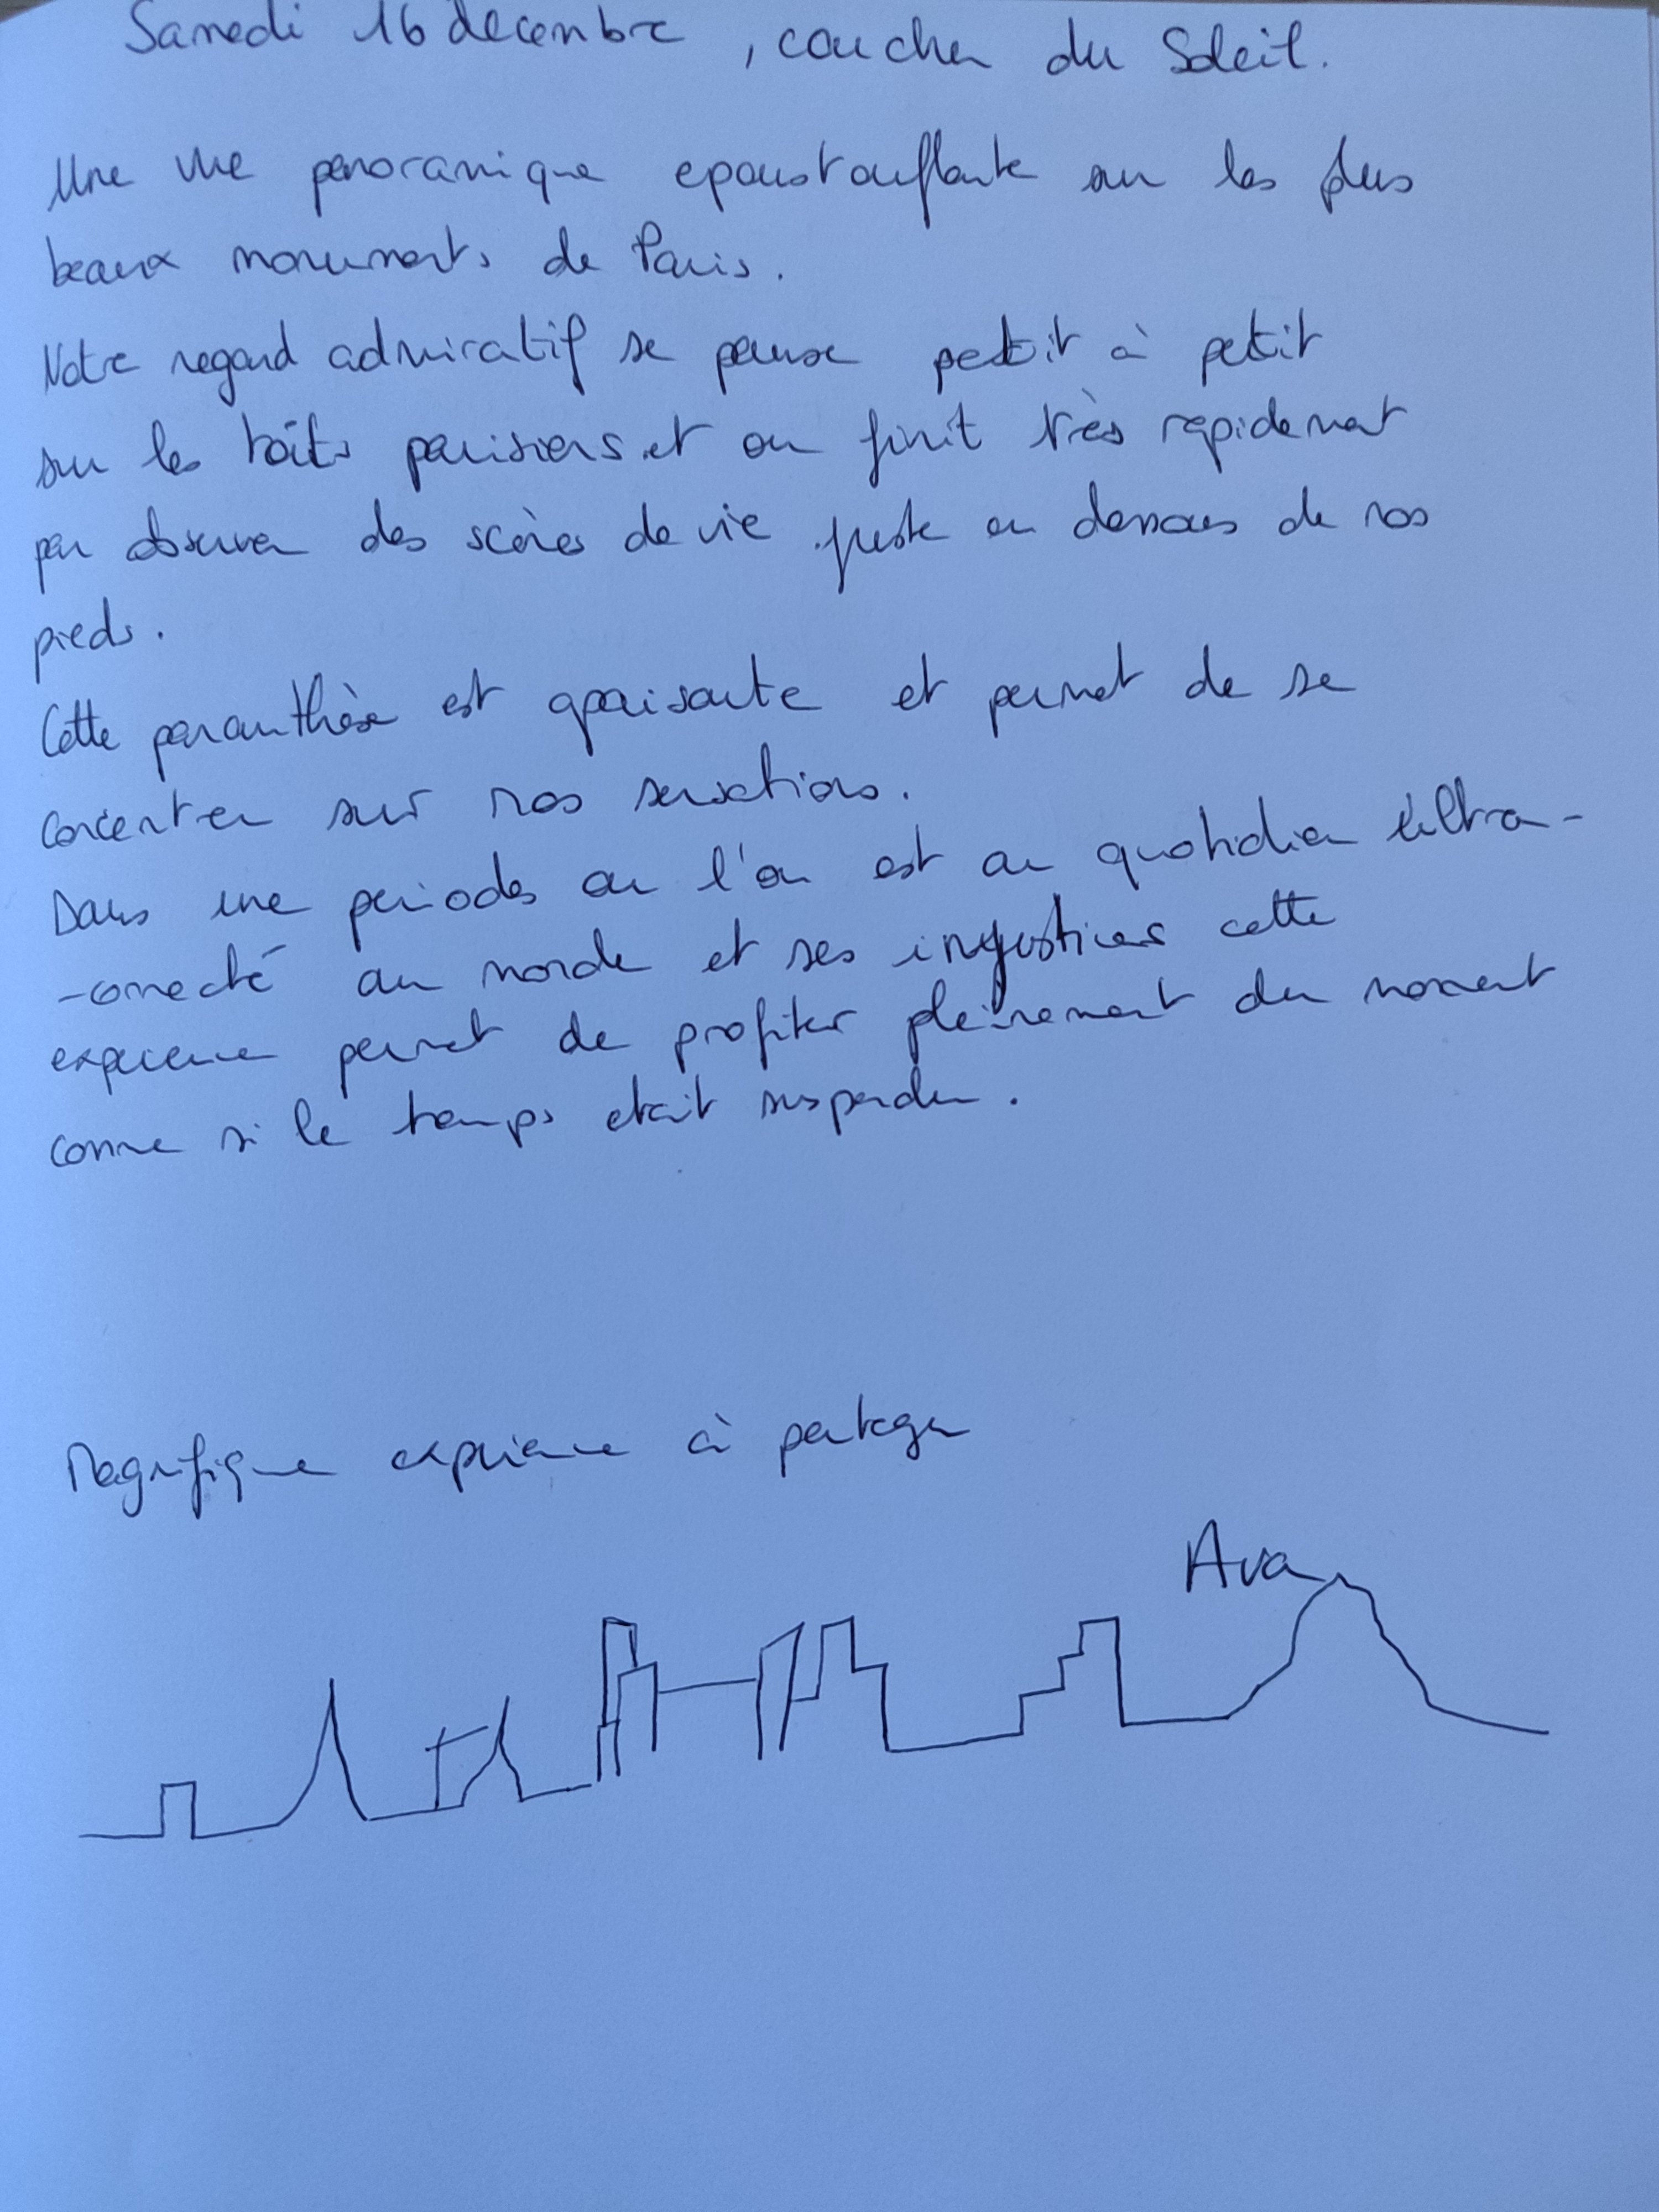 Samedi 16 decembre, coucher du Soleil.
Une vue panoramique epoustouflante sur les plus
beaux monuments de Paris.
Notre regard admiratif se pause petit à petit
sur les toits parisiens et on finit très rapidement
par observer des scènes de vie juste en dessous de nos
pieds.
Cette paranthèse est apaisante et permet de se
concentrer sur nos sensations.
Dans une periodes ou l'on est au quotidien ultra-
-connecté au monde et ses injustices cette
experience permet de profiter pleinement du moment
comme si le temps etait suspendu.
Magnifique experience à partager
Ava